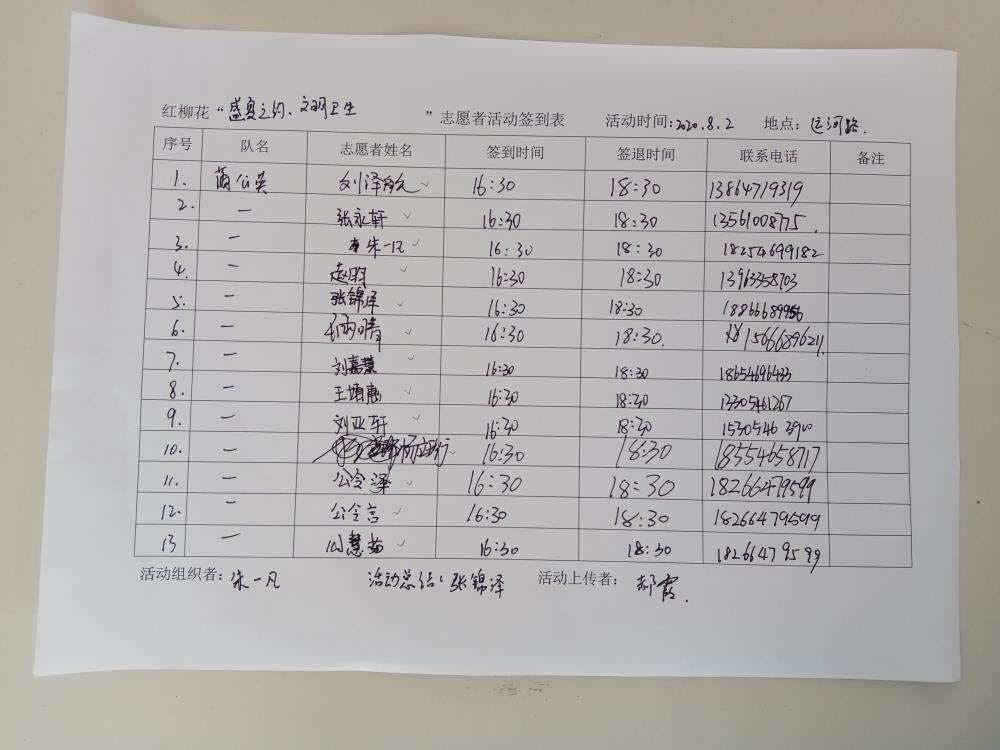 红柳花“盛夏之约、文明卫生”志愿者活动签到表 活动时间:2020.8.2 地点:运河路.
序号 队名 志愿者姓名 签到时间 签退时间 联系电话 备注
1. 蒲公英 刘泽 16:30 18:30 13864719319
2. 一 张永轩 16:30 18:30 13561008775.
3. 一 朱一凡 16:30 18:30 18254699182
4. 一 赵明 16:30 18:30 13963358703
5. 一 张锦泽 16:30 18:30
6. 一 雨晴 16:30 18:30. 15666896211.
7. 一 刘嘉 16:30 18:30 18654696433
8. 一 王 16:30 18:30 13305461267
9. 一 刘亚轩 16:30 18:30 1530546
10. 一 16:30 18:30 18554658717
11. 一 公令泽 16:30 18:30 18266479599
12. 一 公令言 16:30 18:30 18266479599
13 一 慧 16:30 18:30 18266479599
活动组织者:朱一凡 活动总结:张锦泽 活动上传者:郝霞.